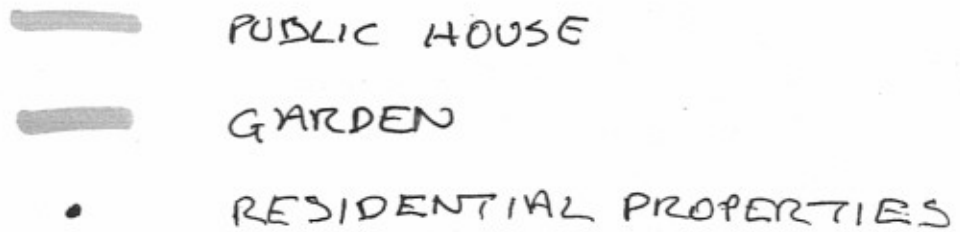 PUBLIC HOUSE
GARDEN
RESIDENTIAL PROPERTIES